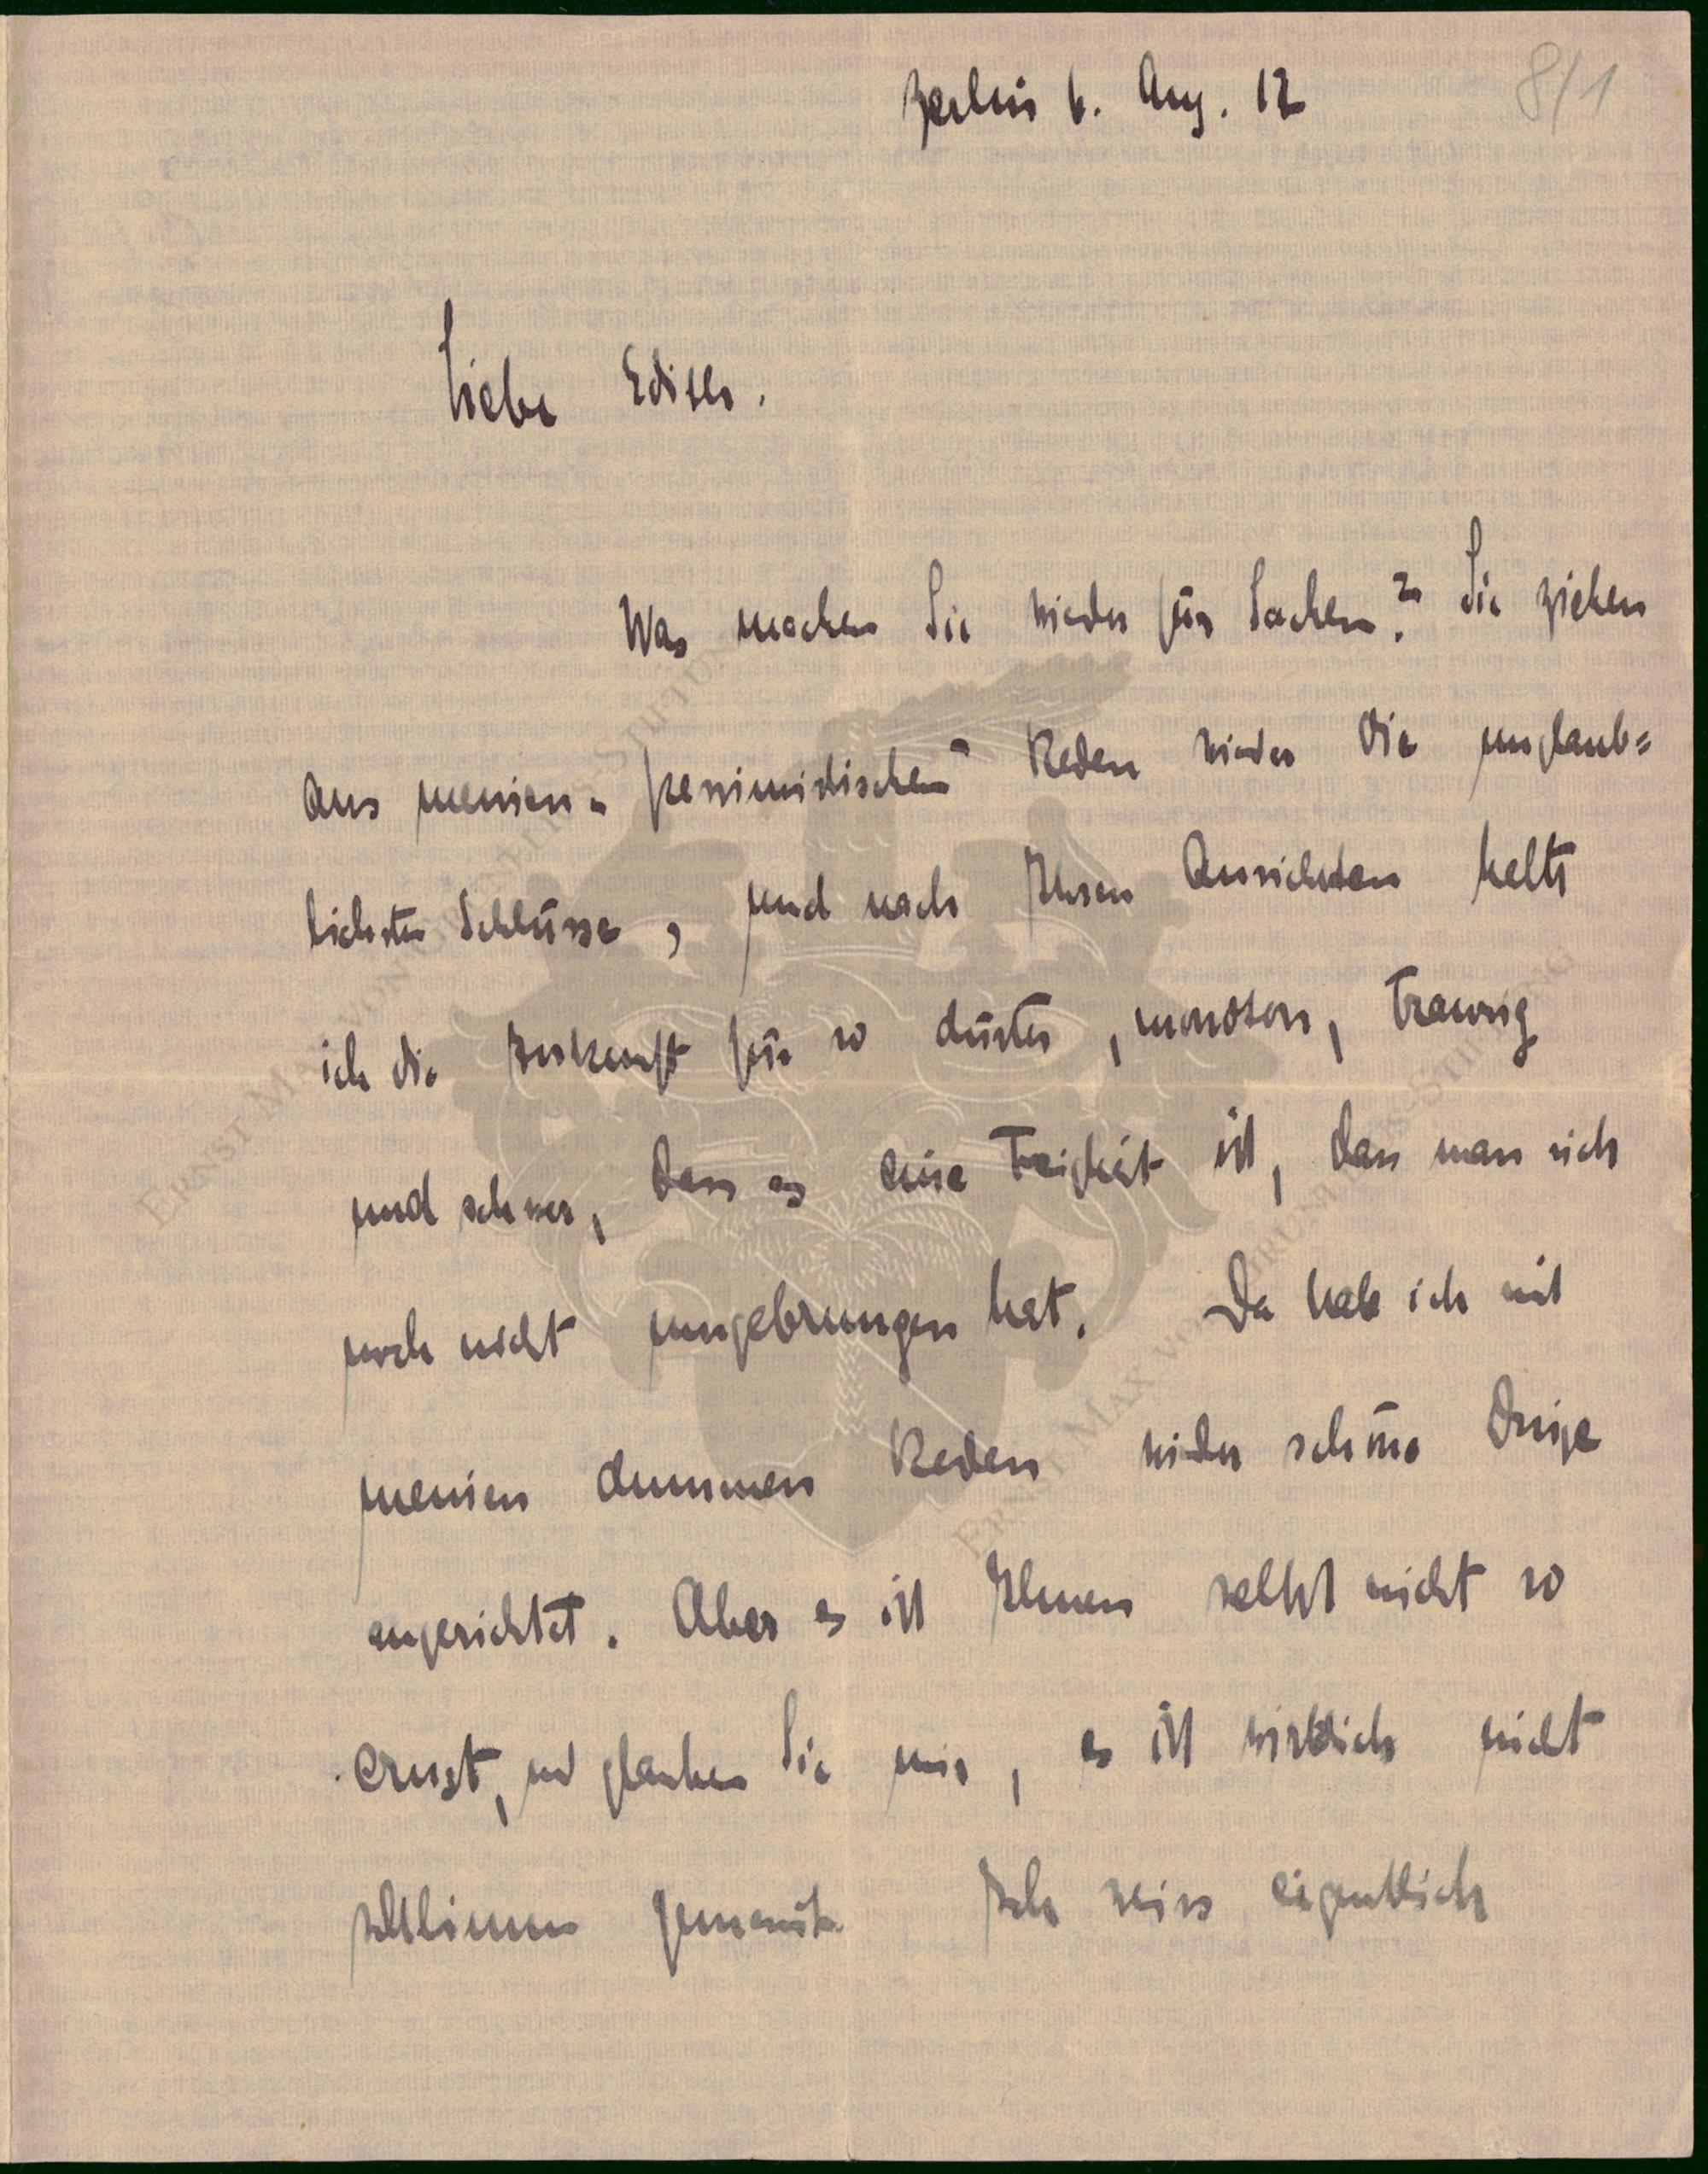 8/1
Berlin 6. Aug. 12
Liebe Edith.
Was machen Sie wieder für Sachen? Sie ziehen
aus meinen „pessimistischen" Reden wieder die unglaub=
lichsten Schlüsse, und nach Ihren Ansichten halte
ich die Zukunft für so düster, monoton, traurig
und schwer, dass es eine Feigheit ist, dass man sich
noch nicht umgebrungen hat. Da hab ich mit
meinen dummen Reden wieder schöne Dinge
angerichtet. Aber es ist Ihnen selbst nicht so
ernst, und glauben Sie mir, es ist wirklich nicht
schlimm gemeint. Ich weiss eigentlich
ERNST MAX VON GRUNELIUS-STIFTUNG
ERNST MAX VON GRUNELIUS-STIFTUNG